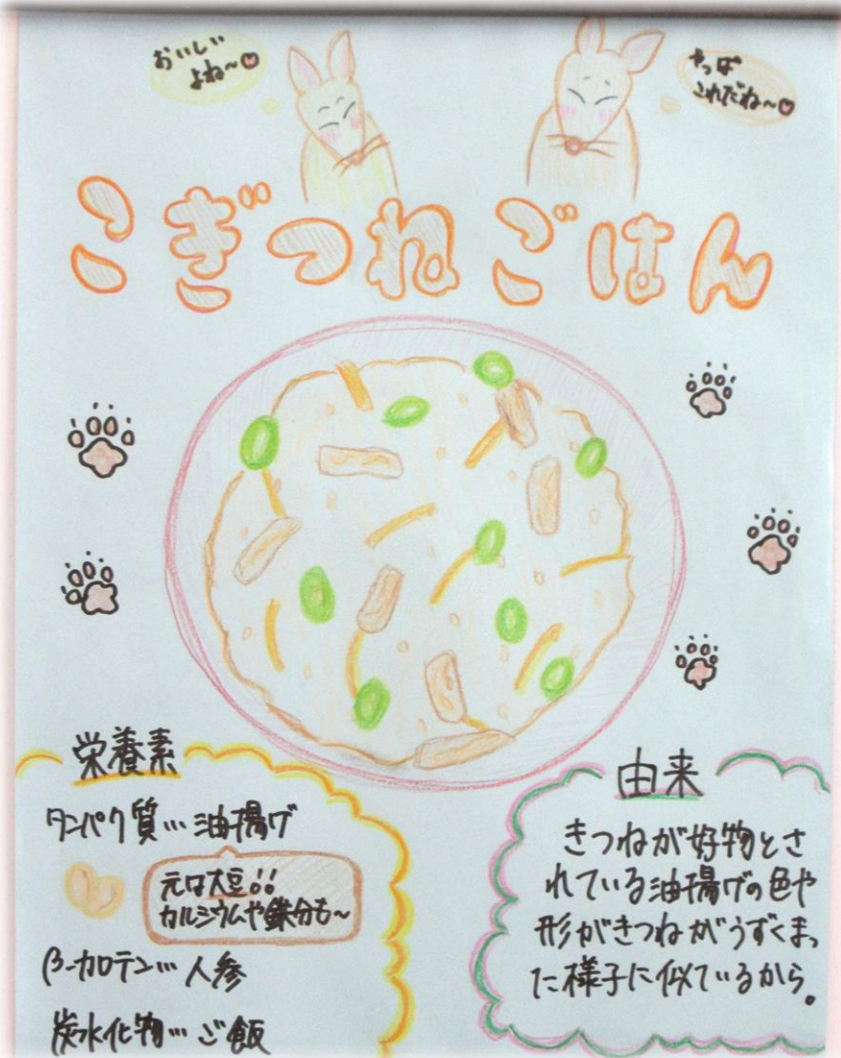 おいしい
よね～♡
やっぱ
これだね～♡
こぎつねごはん
栄養素
タンパク質…油揚げ
元は大豆!!
カルシウムや鉄分も～
β-カロテン…人参
炭水化物…ご飯
由来
きつねが好物とさ
れている油揚げの色や
形がきつねがうずくまっ
た様子に似ているから。